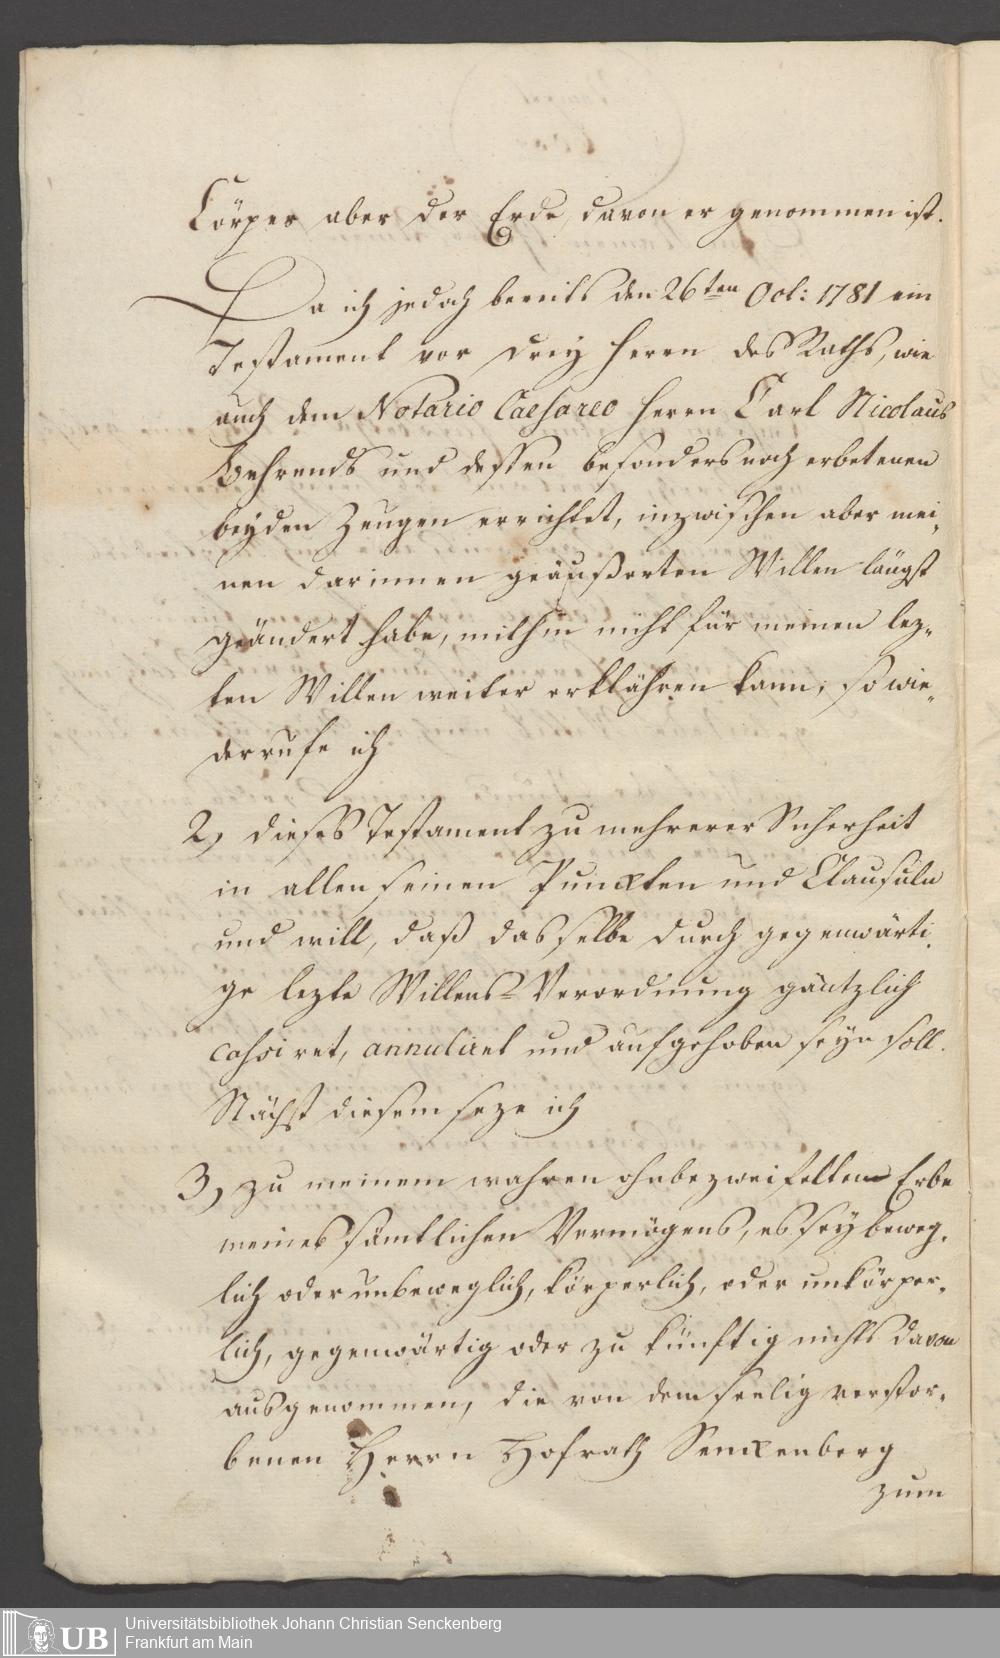 Cörper aber der Erde, davon er genommen ist.
Da ich jedoch bereits den 26ten Oct: 1781 ein
Testament vor drey Herrn des Raths, wie
auch dem Notario Caesareo Herrn Carl Nicolaus
Behrends und dessen besonders noch erbetenen
beyden Zeugen errichtet, inzwischen aber mei„
nen darinnen geäußerten Willen längst
geändert habe, mithin nicht für meinen lez„
ten Willen weiter erklähren kann; so wie„
derrufe ich
2, dieses Testament zu mehrerer Sicherheit
in allen seinen Puncten und Clausuln
und will, daß dasselbe durch gegenwärti„
ge lezte Willens-Verordnung gäntzlich
cassiret, annuliret und aufgehoben seyn soll.
Nächst diesem seze ich
3, zu meinem wahren ohnbezweifelten Erbe
meines sämtlichen Vermögens, es sey beweg„
lich oder unbeweglich, körperlich, oder unkörper„
lich, gegenwärtig oder zukünftig nichts davon
ausgenommen, die von dem seelig verstor„
benen Herrn Hofrath Senckenberg
zum
UB
Universitätsbibliothek Johann Christian Senckenberg
Frankfurt am Main